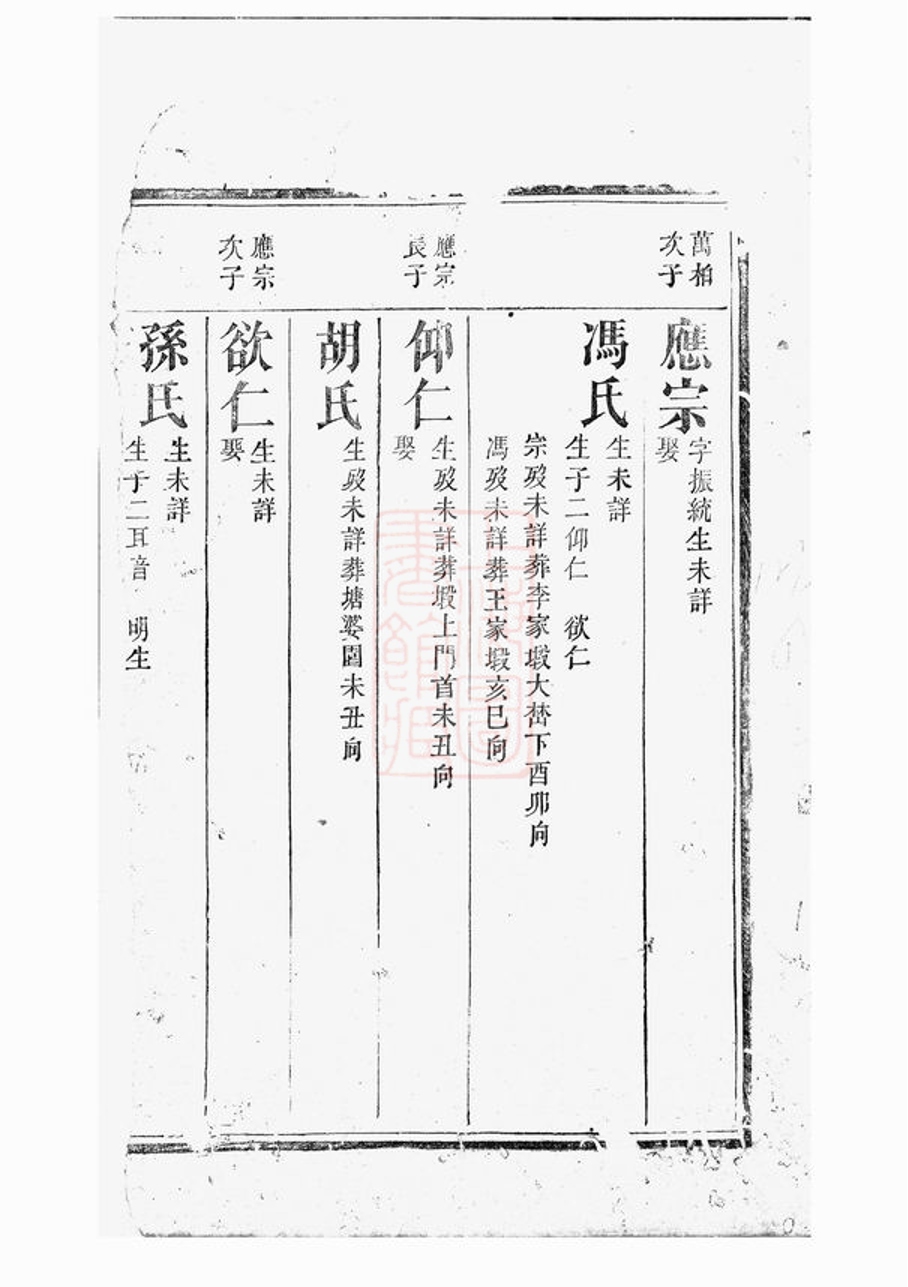 萬柏
次子
應宗
字振統生未詳
娶
馮氏
生未詳
生子二仰仁　欲仁
宗歿未詳葬李家塅大嶅下酉卯向
馮歿未詳葬王家塅亥巳向
應宗
長子
仰仁
生歿未詳葬塅上門首未丑向
娶
胡氏
生歿未詳葬塘婆園未丑向
應宗
次子
欲仁
生未詳
娶
孫氏
生未詳
生子二耳音　明生